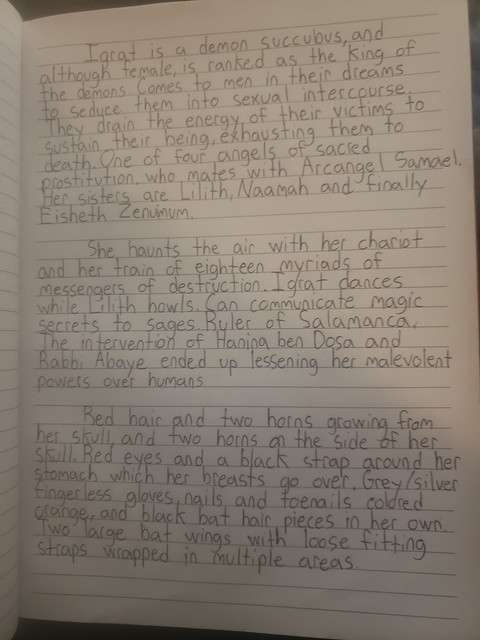 Igrat is a demon succubus, and
although female, is ranked as the king of
the demons. Comes to men in their dreams
to seduce them into sexual intercourse.
They drain the energy of their victims to
sustain their being, exhausting them to
death. One of four angels of sacred
prostitution, who mates with Arcangel Samael.
Her sisters are Lilith, Naamah and finally
Eisheth Zenunum.
She haunts the air with her chariot
and her train of eighteen myriads of
messengers of destruction. Igrat dances
while Lilith howls. Can communicate magic
secrets to sages. Ruler of Salamanca.
The intervention of Hanina ben Dosa and
Rabbi Abaye ended up lessening her malevolent
powers over humans
Red hair and two horns growing from
her skull, and two horns on the side of her
skull. Red eyes and a black strap around her
stomach which her breasts go over. Grey/silver
fingerless gloves, nails and toenails colored
orange, and black bat hair pieces in her own.
Two large bat wings with loose fitting
straps wrapped in multiple areas